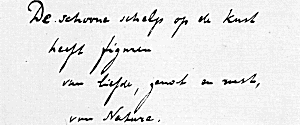 De schoone schelp op de kust
heeft figuren
van liefde, genot en rust,
van Natura.